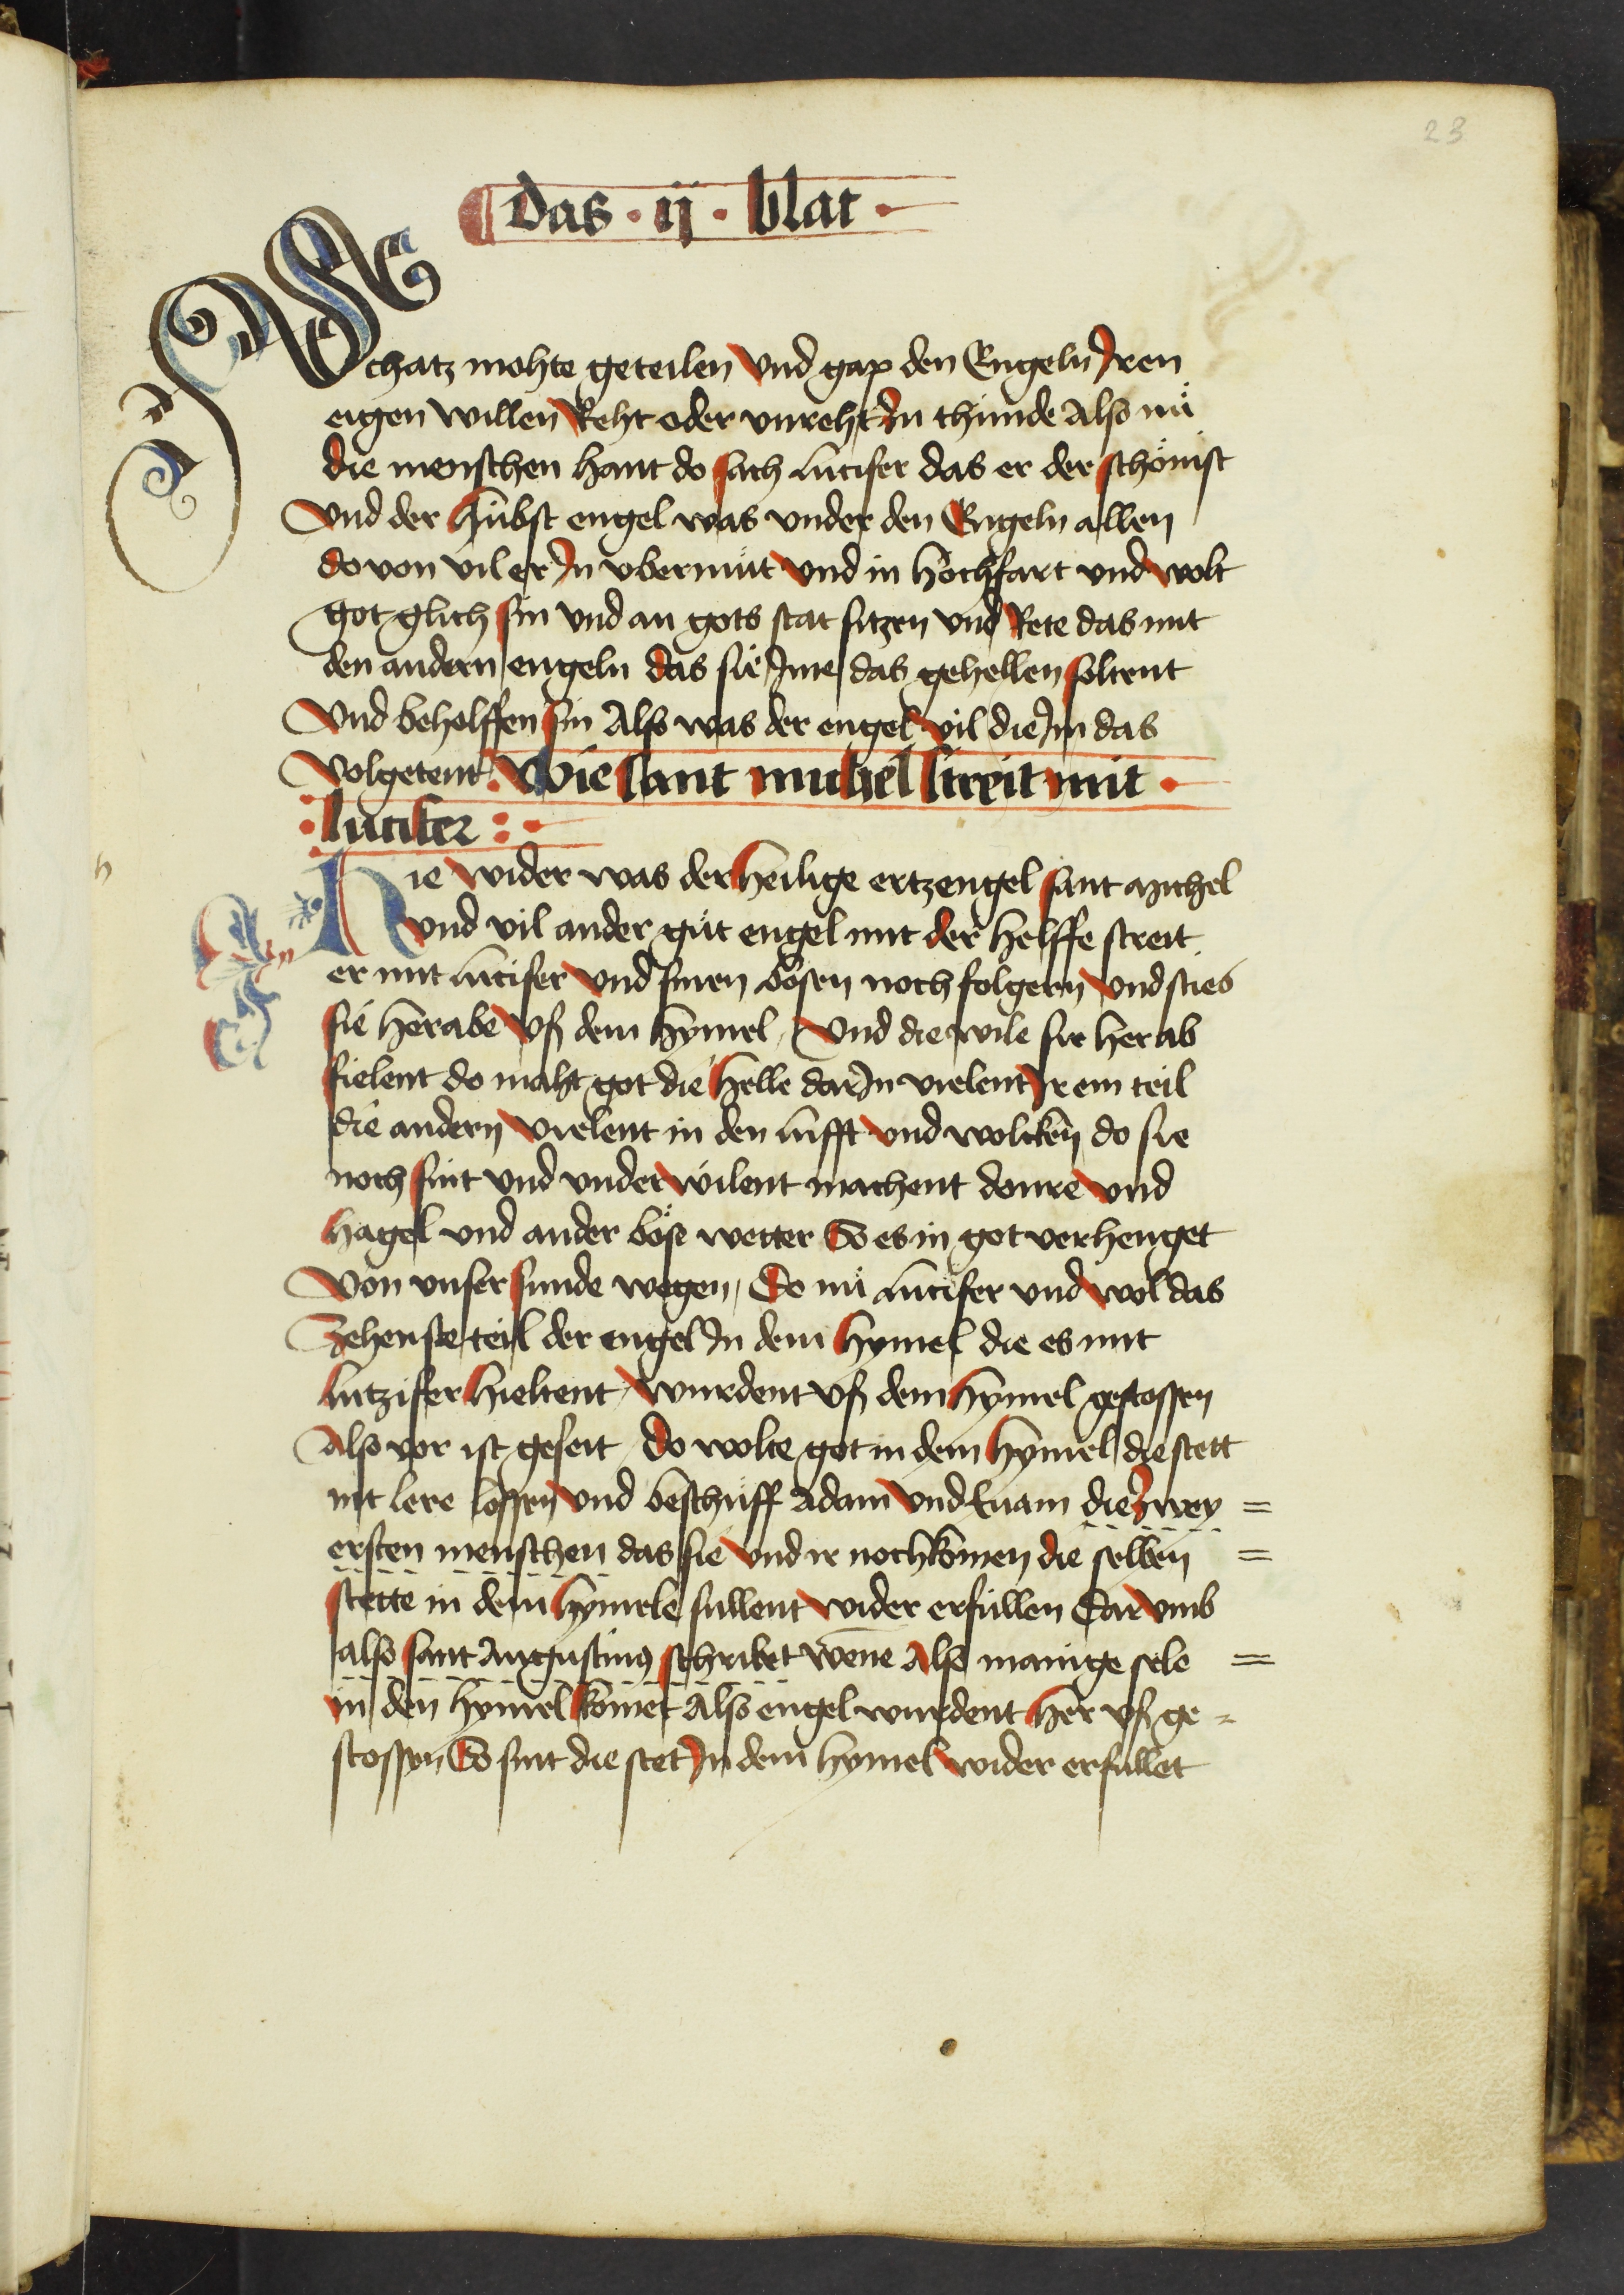 23
das · ij · blat ·
Schatz mohte geteilen Vnd gap den Engeln Jren
eigen willen Reht oder vnreht Zu thunde Also nuͦ
die menschen hant do sach lucifer das er der schoͤnist
Vnd der hübst engel was vnder den Engeln allen
do von vil er Jn vbermuͦt Vnd in hochfart vnd wolt
got glich sin vnd an gots stat sitzen vnd Rete das mit
den andern engeln das sie Jme das gehellen soltent
Vnd beholffen sin Also was der engel vil die Jm das
Volgetent · Wie sant michel streit mit ·
· lucifer : ·
h
Hie wider was der heilige ertzengel sant michel
Vnd vil ander guͦt engel mit der helffe streit
er mit lucifer Vnd sinen boͤsen noch folgern Vnd sties
sie herabe Vß dem hymel / Vnd die wile sie herab
fielent do maht got die helle dar Jn vielent Jr ein teil
die andern Vielent in den lufft Vnd wolcken do sie
noch sint vnd vnder wilent machent donre vnd
hagel vnd ander boͤse wetter So es in got verhenget
Von vnser sunde wegen / Do nuͦ lucifer vnd wol das
Zehenste teil der engel Jn dem hymel die es mit
lutzifer hieltent / Wurdent vß dem hymel gestossen
Also vor ist geseit / do wolte got in dem hymel die stett
nit lere lossen Vnd beschuͦff Adam Vnd Euam die Zwey =
ersten menschen das sie Vnd ir nochkomen die selben =
stette in dem hymele sullent wider erfüllen Dar vmb
also sant Augustinus schribet wēne Also manige sele =
in den hymel komet Also engel wurdent her vß ge =
stossen So sint die stet Jn dem hymel wider erfullet